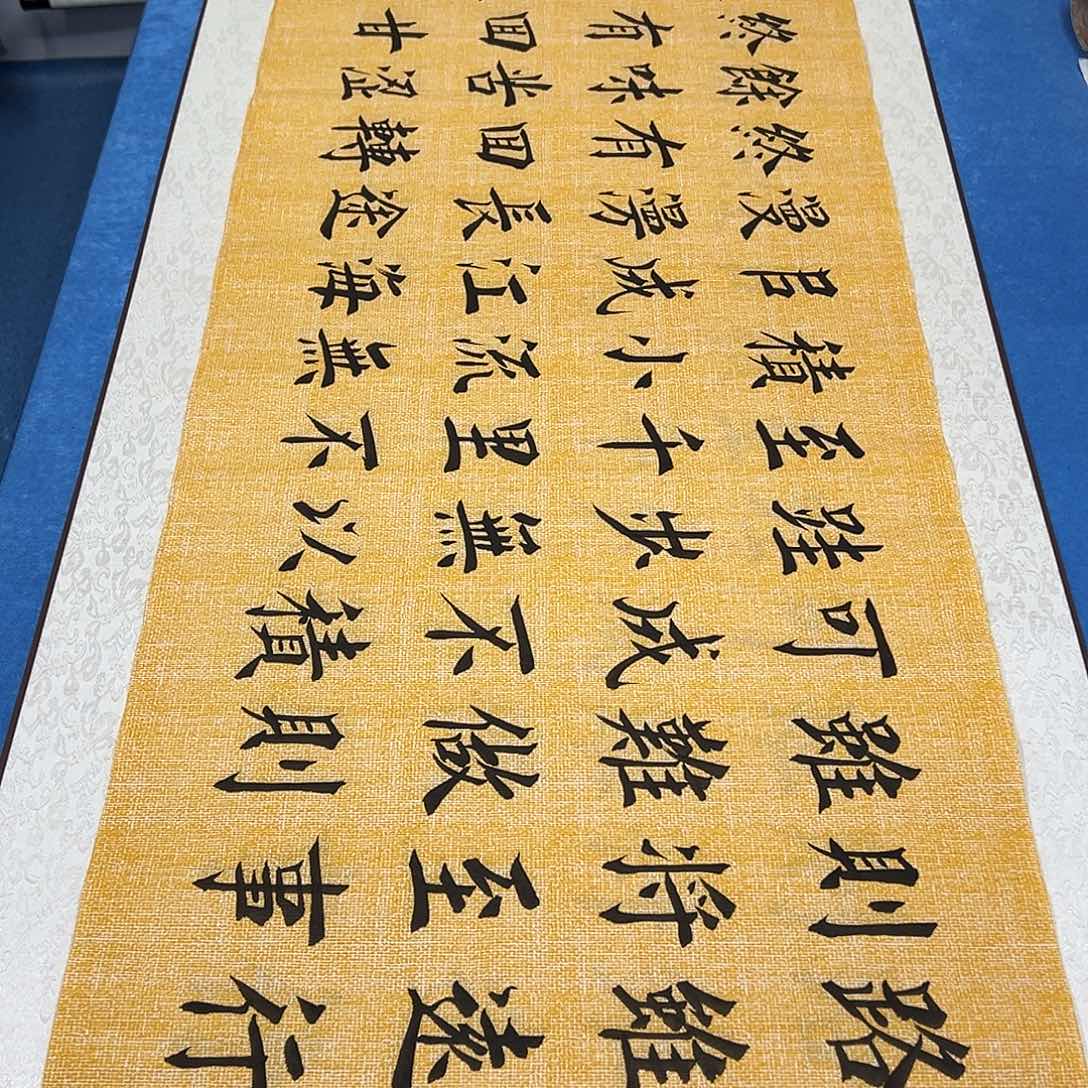 路雖遠行
則將至事
雖難做則
可成不積
跬步無以
至千里不
積小流無
㠯成江海
漫漫長途
終有回轉
餘味苦涩
終有回甘